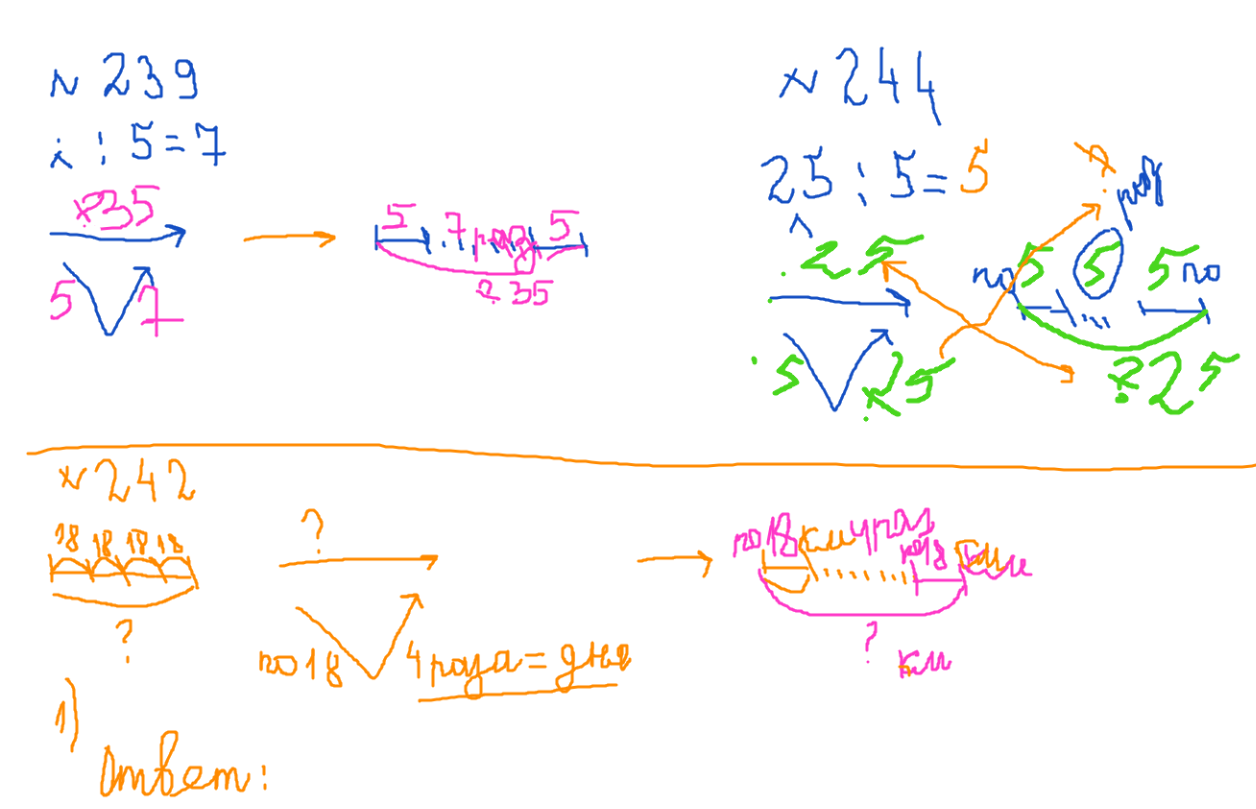 N 239
x : 5 = 7
x ? 35
5 7
5 7 раз 5
? 35
N 244
25 : 5 = 5
?
раз
. 25
по 5 5 5 по
5 x 25
x ? 25
N 242
18 18 18 18
?
?
по 18 4 раза = дня
по 18 км 4 раз по 18 км
?
км
1)
Ответ: